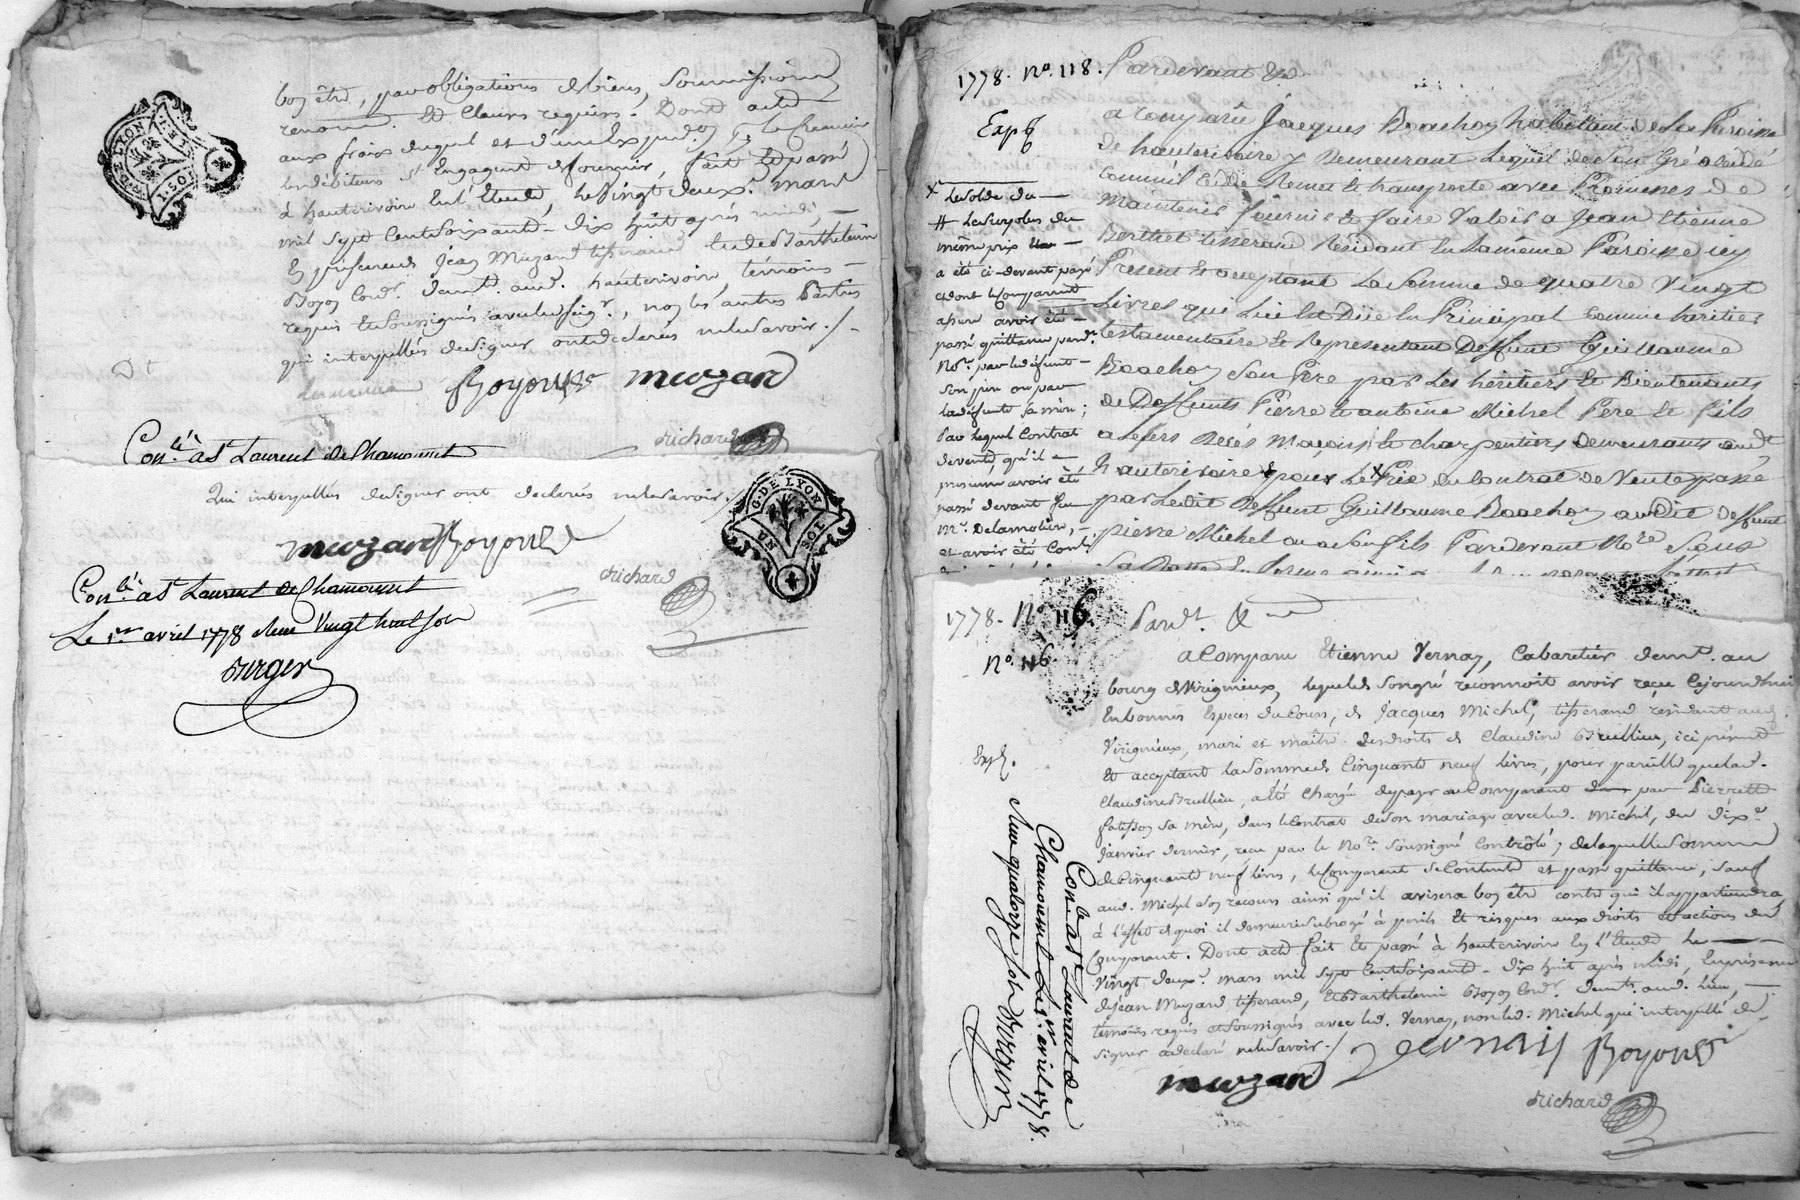 bon être, par obligations de biens, Soumissions
renonc.on Et Clauses requises. Dont acte
aux frais duquel et d'une Exp.on
les débiteurs s'engagent de fournir, fait Et passé
à hauterivoire En l'Etude, le vingt deux.e mars
mil Sept Cent Soixante-Dix huit après midi,
En présence de Jean Muzard tisserand Et de Barthelemi
Boyon Cord.r demt. aud. hauterivoire, témoins
requis Et Soussignés avec led. , non les autres Parties
qui interpellés de Signer ont déclarés ne le Savoir./.
Boyon muzard
Richard
Con.lé à St Laurent de Chamousset
Qui interpellés de Signer ont declarés ne le Savoir./.
muzard Boyon
Richard
G. DE LYON
UN SOL
Con.lé à St Laurent de Chamousset
Le 1er avril 1778 Reçu Vingt huit sols
Burger
1778. No. 118. Pardevant &a
Exp.
a Comparu Jacques Boachon habitant de La Paroisse
de hauterivoire y Demeurant Lequel de Son Gré a Cédé
Commis Cédé Remet et transporte avec Promesses de
Maintenir fournir et faire Valoir a Jean Etienne
Berthet tisserand Résidant En La même Paroisse icy
Présent Et acceptant La Somme de quatre Vingt
Livres qui Lui Est Düe En Principal comme héritier
testamentaire Et Représentant Deffunt Guillaume
Boachon Son Pere par Les héritiers Et Bientenants
de Deffunts Pierre et antoine Michel Pere et fils
a Leurs Décès Maçons Et charpentiers demeurants aud.t
hauterivoire pour Le Prix du Contrat de Vente passé
par Le dit Deffunt Guillaume Boachon audit Deffunt
pierre Michel ou a Son fils Pardevant No.re
x Le Solde du
# Le Surplus du
même prix
a été ci-devant payé
et dont le Comparant
assure avoir été
passé quittance pard.t
No.re par le défunt
Son pere ou par
la défunte Sa mere;
Sur lequel Contrat
de vente qu'il
présume avoir été
passé devant feu
M.e Delamolière,
et avoir été Cont.lé
1778. No. 116. Pard.t &a
No. 116.
a Comparu Etienne Vernay, Cabaretier demt. au
bourg de Virignieux, lequel de Son gré reconnoit avoir reçu Cejourd'hui
En bonnes Especes du Cours, de Jacques Michel, tisserand résidant aud.
Virignieux, mari et maître des droits de Claudine Brullieu, ici présent
Et acceptant la Somme de Cinquante neuf livres, pour pareille que lad.
Claudine Brullieu, a été Chargée de payer au Comparant par Pierrette
sa mère, dans le Contrat de Son mariage avec led. Michel, du dix.e
Janvier dernier, reçu par le No.re Soussigné Contrôlé; de laquelle Somme
de Cinquante neuf livres, le Comparant Se Contente et passe quittance, Sauf
aud. Michel Son recours ainsi qu'il avisera bon être contre qui il appartiendra
à l'effet de quoi il demeure Subrogé à perils Et risques aux droits et actions du
Comparant. Dont acte fait Et passé à hauterivoire En l'Etude Le
Vingt deux.e mars mil Sept Cent Soixante-Dix huit après midi, En présence
de Jean Muzard tisserand, Et Barthelemi Boyon Cord.r demt. aud. lieu,
témoins requis et Soussignés avec led. Vernay, non led. Michel qui interpellé de
Signer a declaré ne le Savoir./.
Vernay Boyon
muzard
Richard
Exp.
Con.lé à St Laurent de
Chamousset Le 1er avril 1778.
Reçu quatorze sols Burger